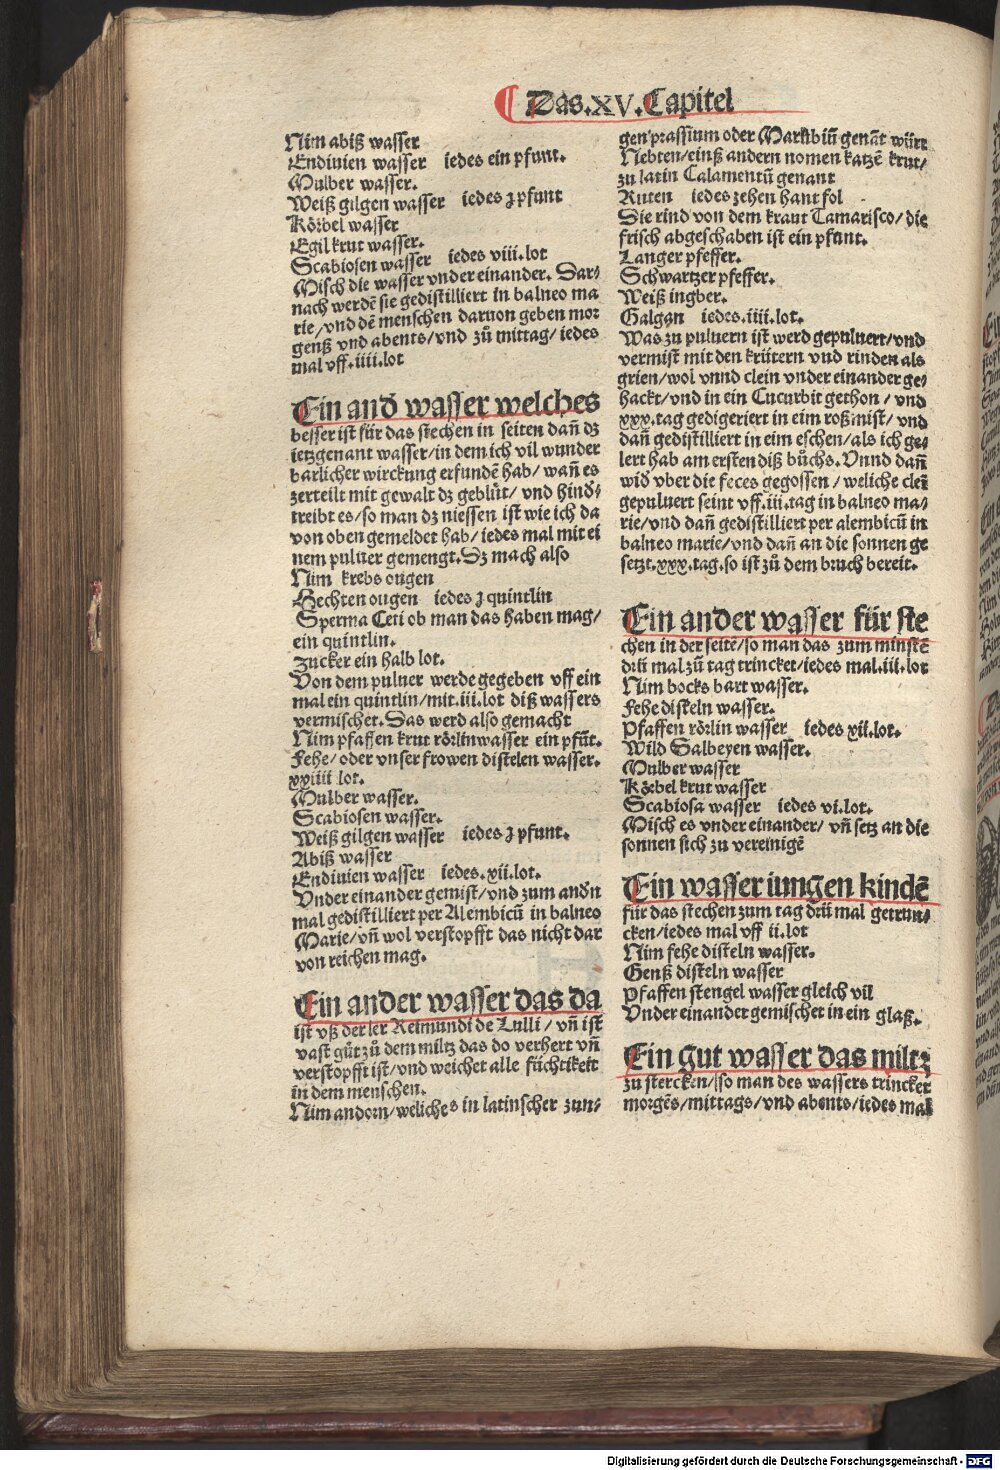 Das.XV.Capitel
Nim abiß wasser
Endiuien wasser iedes ein pfunt.
Mulber wasser.
Weiß gilgen wasser iedes ʒ pfunt
Körbel wasser
Egil krut wasser.
Scabiosen wasser iedes viii.lot
Misch die wasser vnder einander. Dar⸗
nach werdē sie gedistilliert in balneo ma
rie/vnd dē menschen daruon geben mor
genß vnd abents/vnd zů mittag/iedes
mal vff.iiii.lot
Ein and̄ wasser welches
besser ist für das stechen in seiten dañ dz
ietzgenant wasser/in dem ich vil wunder
barlicher wirckung erfundē hab/wañ es
zerteilt mit gewalt dz geblůt/ vnd hind̄⸗
treibt es/so man dz niessen ist wie ich da
von oben gemeldet hab/iedes mal mit ei
nem puluer gemengt.Dz mach also
Nim krebs ougen
Hechten ougen iedes ʒ quintlin
Sperma Ceti ob man das haben mag/
ein quintlin.
zucker ein halb lot.
Von dem puluer werde gegeben vff ein
mal ein quintlin/mit.iii.lot diß wassers
vermischet.Das werd also gemacht
Nim pfaffen krut rörlinwasser ein pfūt.
Fehe/oder vnser frowen distelen wasser.
xxiiii lot.
Mulber wasser.
Scabiosen wasser.
Weiß gilgen wasser iedes ʒ pfunt.
Abiß wasser
Endiuien wasser iedes.xii.lot.
Vnder einander gemist/vnd zum and̄n
mal gedistilliert per Alembicū in balneo
Marie/vñ wol verstopfft das nicht dar
von reichen mag.
Ein ander wasser das da
ist vß der ler Reimundi de Lulli/vñ ist
vast gůt zů dem miltz das do verhert vñ
verstopfft ist/vnd weichet alle füchtikeit
in dem menschen.
Nim andorn/weliches in latinscher zun⸗
gen prassium oder Marubiū genāt würt
Nebten/einß andern nomen katzē krut/
zu latin Calamentū genant
Ruten iedes zehen hant fol
Die rind von dem kraut Tamarisco/die
frisch abgeschaben ist ein pfunt.
Langer pfeffer.
Schwartzer pfeffer.
Weiß ingber.
Galgan iedes.iiii.lot.
Was zu puluern ist werd gepuluert/vnd
vermist mit den krütern vnd rinden als
grien/wol vnnd clein vnder einander ge⸗
hackt/vnd in ein Cucurbit gethon/vnd
xxx.tag gedigeriert in eim roßmist/vnd
dañ gedistilliert in eim eschen/als ich ge⸗
lert hab am ersten diß bůchs.Vnnd dañ
wid̄ vber die feces gegossen/weliche clei
gepuluert seint vff.iii.tag in balneo ma⸗
rie/vnd dañ gedistilliert per alembicū in
balneo marie/vnd dañ an die sonnen ge
setzt.xxx.tag.so ist zů dem bruch bereit.
Ein ander wasser für ste
chen in der seitē/so man das zum minstē
drü mal zů tag trincket/iedes mal.iii.lot
Nim bocks bart wasser.
Fehe disteln wasser.
Pfaffen rörlin wasser iedes xii.lot.
Wild Salbeyen wasser.
Mulber wasser
Körbel krut wasser
Scabiosa wasser iedes vi.lot.
Misch es vnder einander/vñ setz an die
sonnen sich zu vereinigē
Ein wasser iungen kindē
für das stechen zum tag drü mal getrun⸗
cken/iedes mal vff ii.lot
Nim fehe disteln wasser.
Genß disteln wasser
Pfaffen stengel wasser gleich vil
Vnder einander gemischet in ein glaß.
Ein gut wasser das miltz
zu stercken/so man des wassers trincket
morgēs/mittags/vnd abents/iedes mal
Digitalisierung gefördert durch die Deutsche Forschungsgemeinschaft - DFG